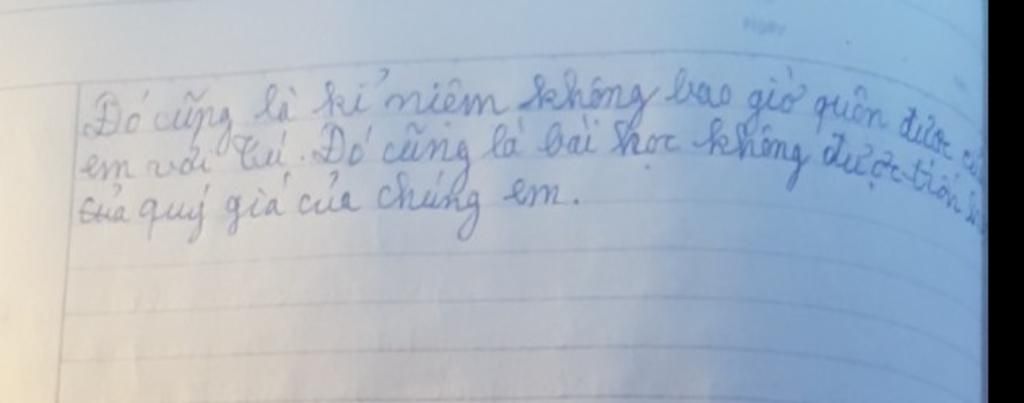 Đó cũng là kỉ niệm không bao giờ quên được củ
em với Tú. Đó cũng là bài học không được tiến
của quý giá của chúng em.